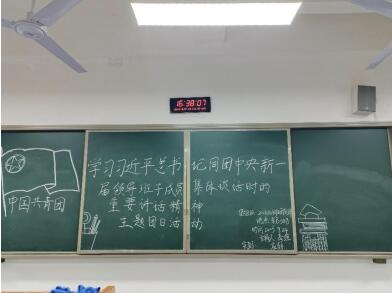 16:38:07
学习习近平总书记同团中央新一
届领导班子成员集体谈话时的
重要讲话精神
主题团日活动
中国共青团